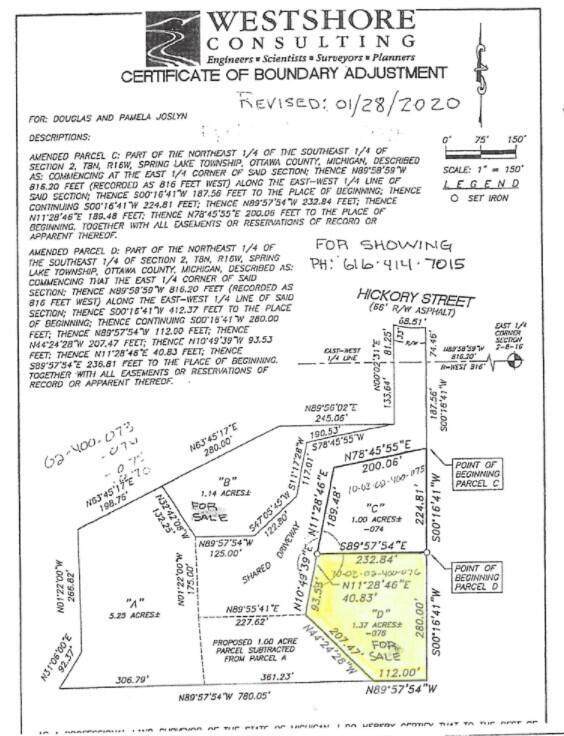 WESTSHORE
CONSULTING
Engineers ▪ Scientists ▪ Surveyors ▪ Planners
CERTIFICATE OF BOUNDARY ADJUSTMENT
REVISED: 01/28/2020
FOR: DOUGLAS AND PAMELA JOSLYN
DESCRIPTIONS:
AMENDED PARCEL C: PART OF THE NORTHEAST 1/4 OF THE SOUTHEAST 1/4 OF
SECTION 2, T8N, R16W, SPRING LAKE TOWNSHIP, OTTAWA COUNTY, MICHIGAN, DESCRIBED
AS: COMMENCING AT THE EAST 1/4 CORNER OF SAID SECTION; THENCE N89°58'59"W
816.20 FEET (RECORDED AS 816 FEET WEST) ALONG THE EAST-WEST 1/4 LINE OF
SAID SECTION; THENCE S00°16'41"W 187.56 FEET TO THE PLACE OF BEGINNING; THENCE
CONTINUING S00°16'41"W 224.81 FEET; THENCE N89°57'54"W 232.84 FEET; THENCE
N11°28'46"E 189.48 FEET; THENCE N78°45'55"E 200.06 FEET TO THE PLACE OF
BEGINNING. TOGETHER WITH ALL EASEMENTS OR RESERVATIONS OF RECORD OR
APPARENT THEREOF.
AMENDED PARCEL D: PART OF THE NORTHEAST 1/4 OF
THE SOUTHEAST 1/4 OF SECTION 2, T8N, R16W, SPRING
LAKE TOWNSHIP, OTTAWA COUNTY, MICHIGAN, DESCRIBED AS:
COMMENCING THAT THE EAST 1/4 CORNER OF SAID
SECTION; THENCE N89°58'59"W 816.20 FEET (RECORDED AS
816 FEET WEST) ALONG THE EAST-WEST 1/4 LINE OF SAID
SECTION; THENCE S00°16'41"W 412.37 FEET TO THE PLACE
OF BEGINNING; THENCE CONTINUING S00°16'41"W 280.00
FEET; THENCE N89°57'54"W 112.00 FEET; THENCE
N44°24'28"W 207.47 FEET; THENCE N10°49'39"E 93.53
FEET; THENCE N11°28'46"E 40.83 FEET; THENCE
S89°57'54"E 236.81 FEET TO THE PLACE OF BEGINNING.
TOGETHER WITH ALL EASEMENTS OR RESERVATIONS OF
RECORD OR APPARENT THEREOF.
0' 75' 150'
SCALE: 1" = 150'
LEGEND
SET IRON
FOR SHOWING
PH: 616-414-7015
HICKORY STREET
(66' R/W ASPHALT)
68.51'
33'
R/W
81.25'
74.46'
N00°02'31"E
133.64'
EAST-WEST
1/4 LINE
N89°58'59"W
816.20'
R=WEST 816'
EAST 1/4
CORNER
SECTION
2-8-16
187.56'
S00°16'41"W
N89°56'02"E
245.06'
190.53'
S78°45'55"W
N63°45'17"E
280.00'
N63°45'17"E
198.76'
02-400-073
N78°45'55"E
200.06'
10-02-02-400-075
POINT OF
BEGINNING
PARCEL C
"B"
1.14 ACRES±
FOR
SALE
S11°17'28"W
117.01'
S47°05'45"W
122.80'
N11°28'46"E
189.48'
"C"
1.00 ACRES±
-074
224.81'
S00°16'41"W
N32°42'08"W
132.25'
N89°57'54"W
125.00'
SHARED DRIVEWAY
S89°57'54"E
232.84'
10-02-02-400-076
N11°28'46"E
40.83'
POINT OF
BEGINNING
PARCEL D
N01°22'00"W
266.62'
N01°22'00"W
175.00'
N10°49'39"E
93.53'
"A"
5.25 ACRES±
N89°55'41"E
227.62'
"D"
1.37 ACRES±
-076
FOR
SALE
280.00'
S00°16'41"W
N44°24'28"W
207.47'
PROPOSED 1.00 ACRE
PARCEL SUBTRACTED
FROM PARCEL A
N31°06'00"E
92.37'
306.79'
361.23'
112.00'
N89°57'54"W 780.05'
N89°57'54"W